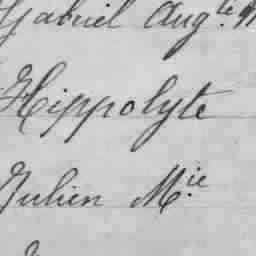 Gabriel Aug.te
Hippolyte
Julien M.ie